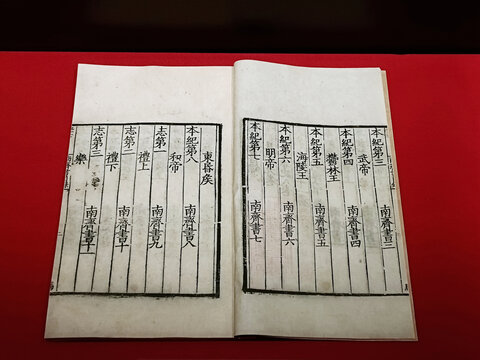 本紀第三 南齊書三
武帝
本紀第四 南齊書四
鬱林王
本紀第五 南齊書五
海陵王
本紀第六 南齊書六
明帝
本紀第七 南齊書七
東昏矦
本紀第八 南齊書八
和帝
志第一 南齊書九
禮上
志第二 南齊書十
禮下
志第三 南齊書十一
樂